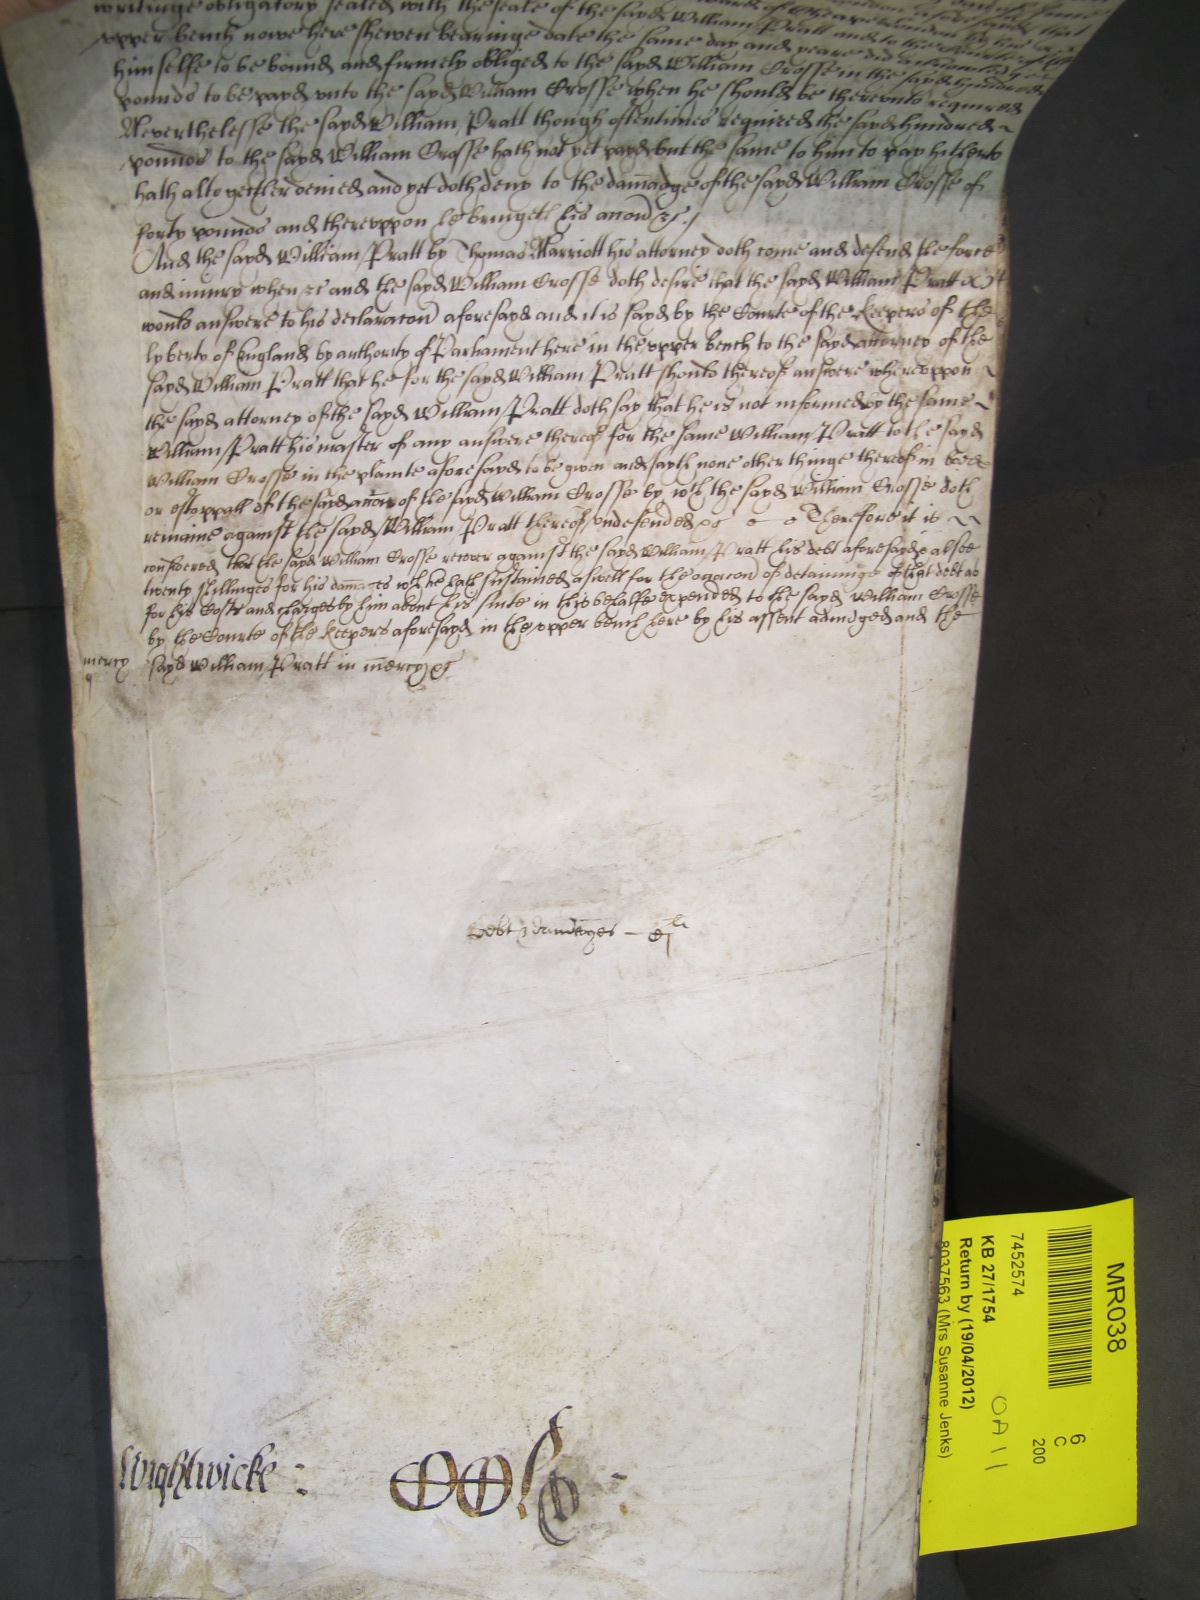 writinge obligatory sealed with the seale of the sayd William Pratt and to the
upper bench nowe here shewen bearinge date the same day and yeare did acknowledge
himselfe to be bound and firmely obliged to the sayd William Crosse in the sayd hundred
pounds to be payd unto the sayd William Crosse when he should be thereunto required
Neverthelesse the sayd William Pratt though oftentimes required the sayd hundred
pounds to the sayd William Crosse hath not yet payd but the same to him to pay hitherto
hath altogether denied and yet doth deny to the damadge of the sayd William Crosse of
forty pounds and thereuppon he bringeth his accon &c /
And the sayd William Pratt by Thomas Marriott his attorney doth come and defend the force
and iniury when &c and the sayd William Crosse doth desire that the sayd William Pratt
would answere to his declaracon aforesayd and it is sayd by the Courte of the Keepers of the
lyberty of England by authority of Parliament here in the upper bench to the sayd attorney of the
sayd William Pratt that he for the sayd William Pratt should thereof answere whereuppon
the sayd attorney of the sayd William Pratt doth say that he is not informed by the same
William Pratt his master of any answere thereof for the same William Pratt to the sayd
William Crosse in the plainte aforesayd to be given and sayth none other thinge thereof in
or estoppall of the sayd accon of the sayd William Crosse by wch the sayd William Crosse doth
remaine against the sayd William Pratt thereof undefended &c Therefore it is
considered that the sayd William Crosse recover against the sayd William Pratt his debt aforesayd & alsoe
twenty shillinges for his damages wch he hath sustained aswell for the occacon of detaininge of that debt as
for his Costs and charges by him about his suite in this behalfe expended to the sayd William Crosse
by the Courte of the Keepers aforesayd in the upper bench here by his assent adiudged and the
mercy sayd William Pratt in mercy &c
Debt & damages — Cj li
Wightwicke :
MR038
6
C
200
7452574
KB 27/1754
Return by (19/04/2012)
8037563 (Mrs Susanne Jenks)